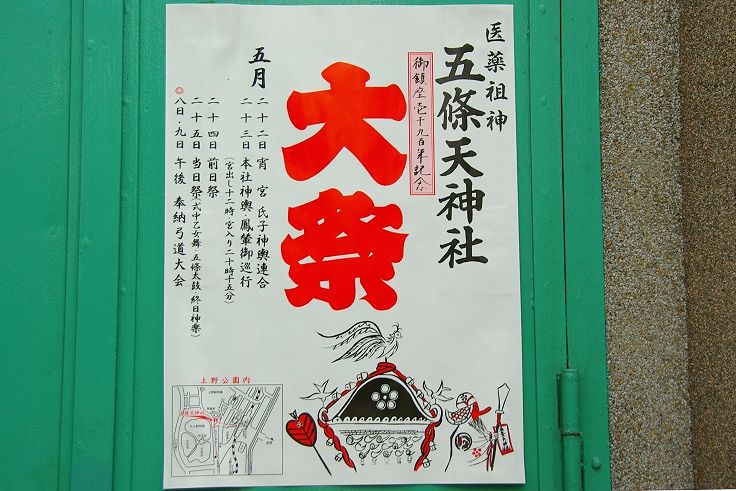 医薬祖神
五條天神社
御鎮座壱千九百年記念
大祭
五月
二十二日 宵宮 氏子神輿連合
二十三日 本社神輿・鳳輦御巡行
(宮出し十二時 宮入り二十時十五分)
二十四日 前日祭
二十五日 当日祭(式中乙女舞・五條太鼓 終日神楽)
◎八日・九日 午後 奉納弓道大会
上野公園内